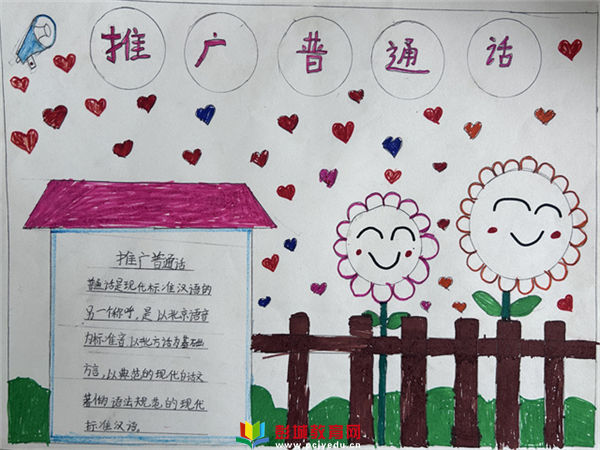 推广普通话
推广普通话
普通话是现代标准汉语的
另一个称呼,是以北京语音
为标准音,以北方话为基础
方言,以典范的现代白话文
著作为语法规范的现代
标准汉语。
彭城教育网
www.pcjyedu.cn